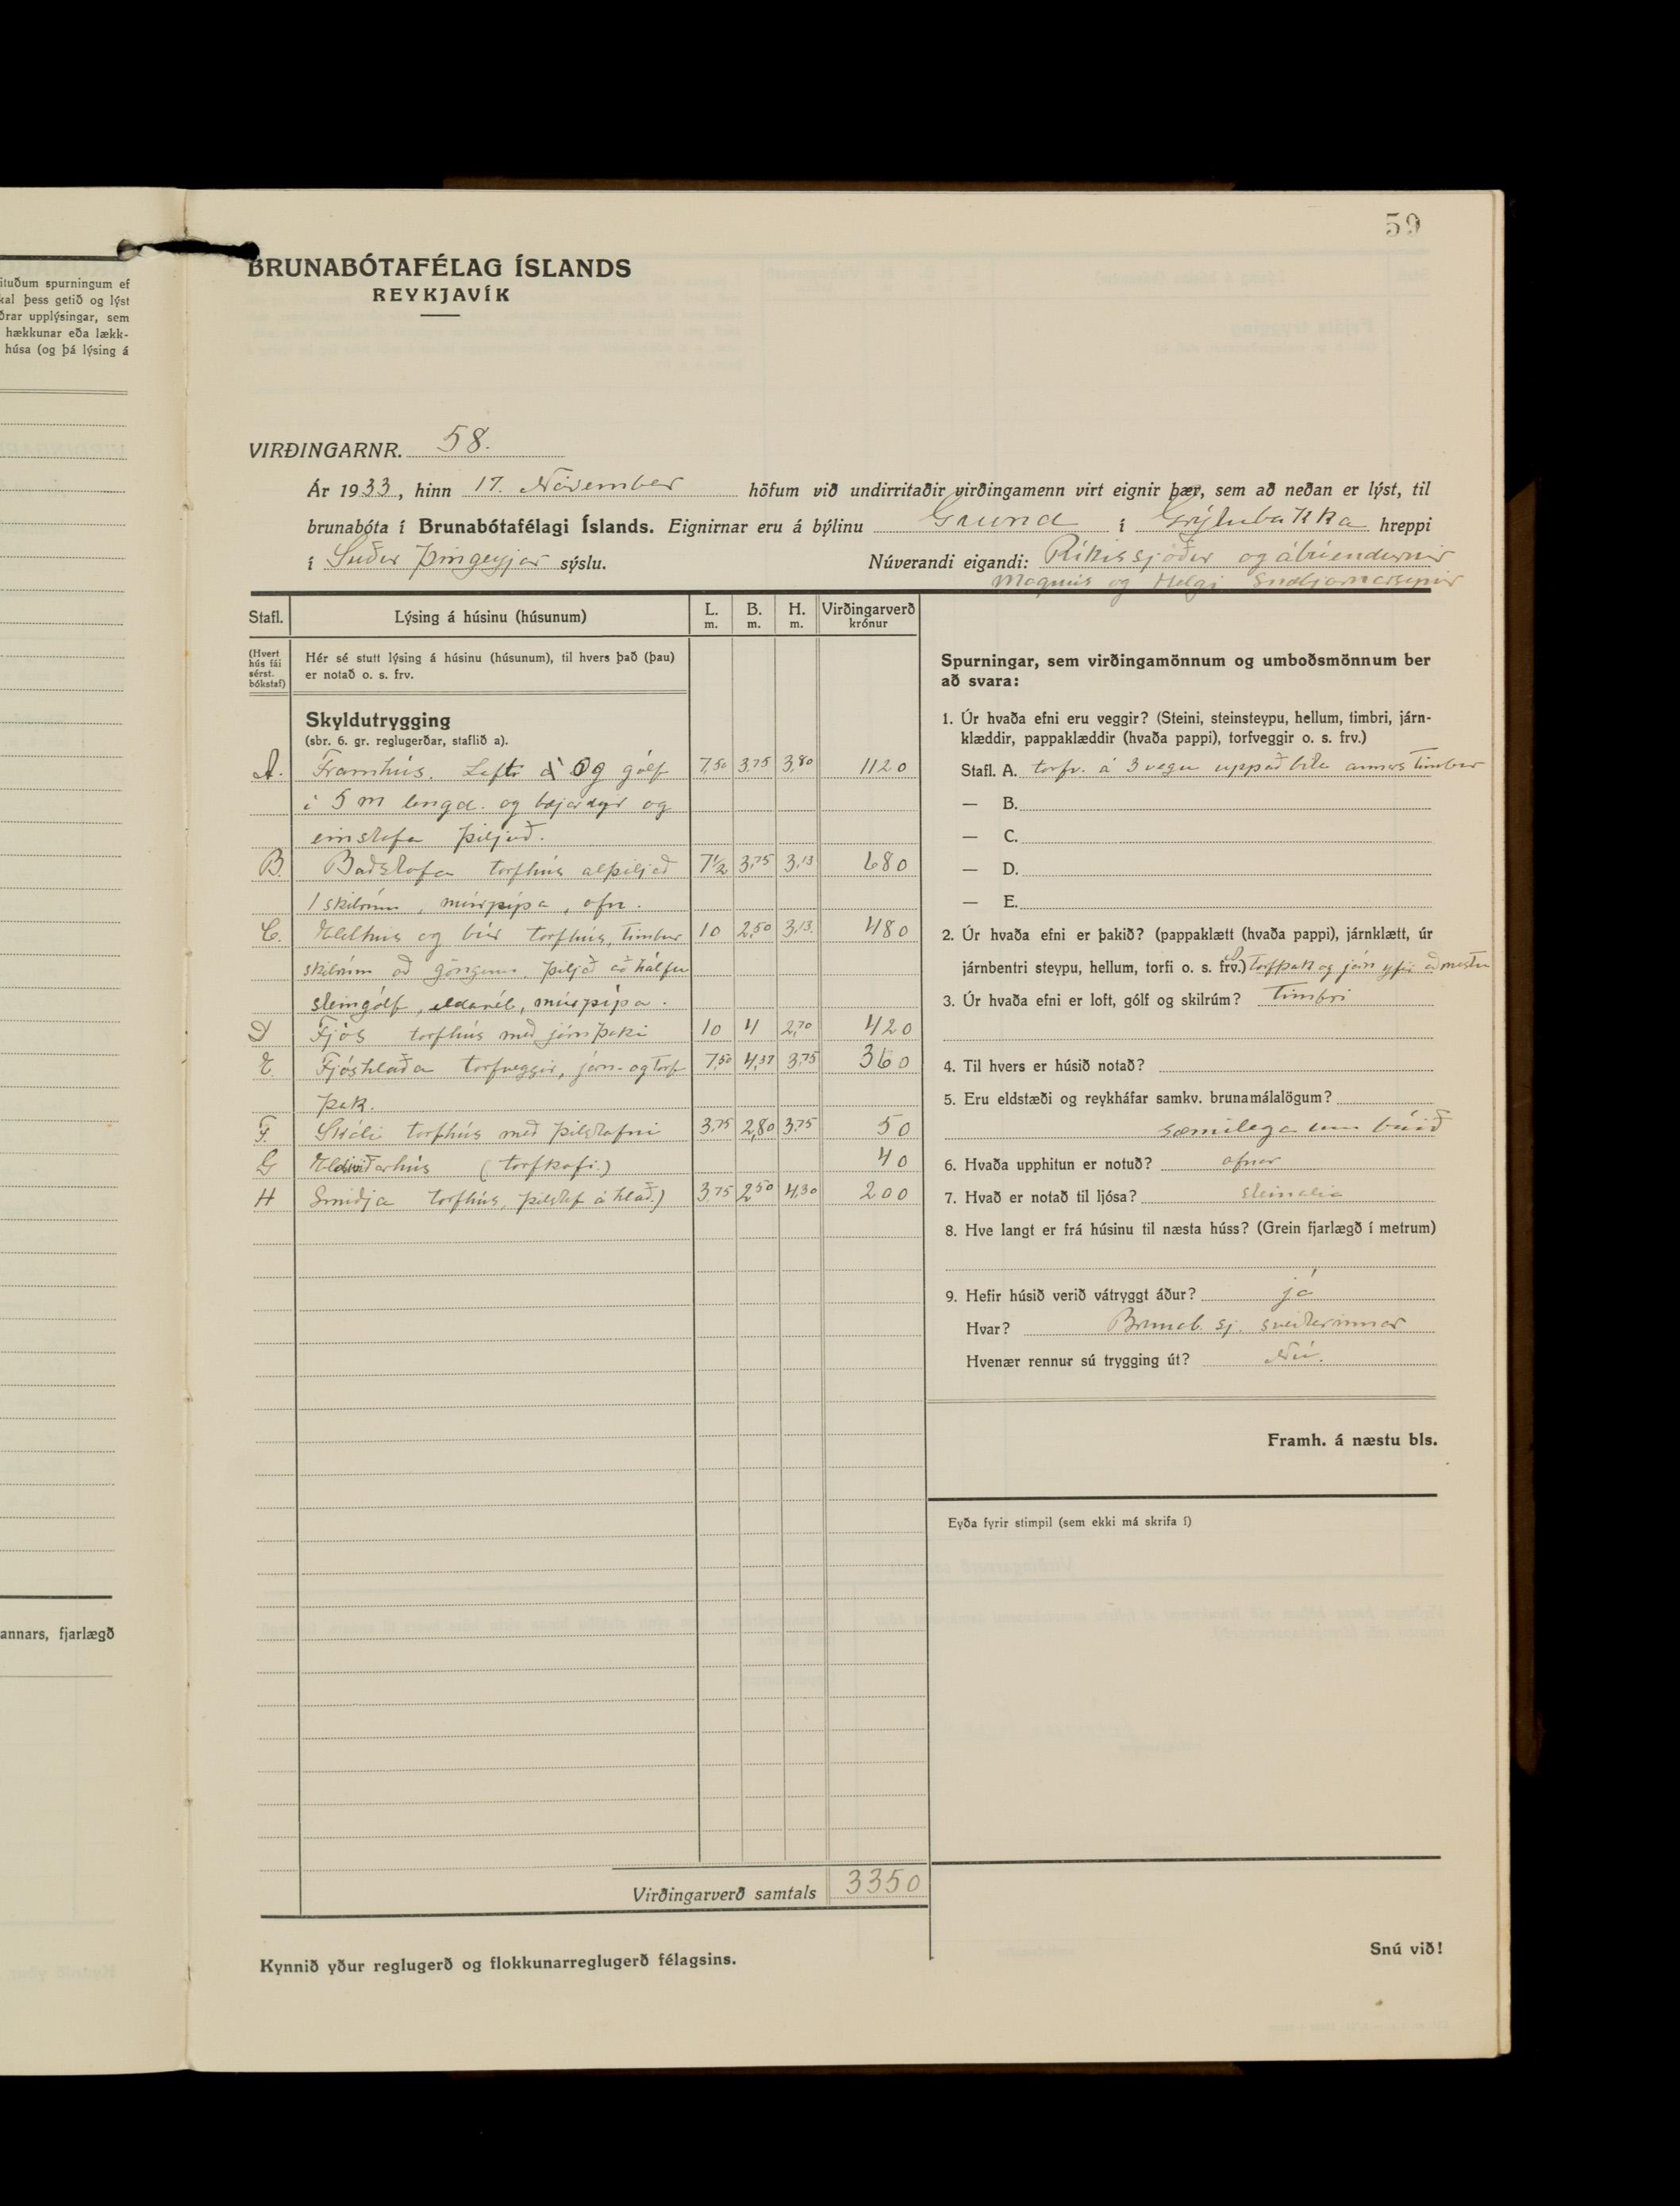 ituðum spurningum ef
kal þess getið og lýst
ðrar upplýsingar, sem
hækkunar eða lækk-
húsa (og þá lýsing á
annars, fjarlægð
59
BRUNABÓTAFÉLAG ÍSLANDS
REYKJAVÍK
VIRÐINGARNR. 58.
Ár 1933, hinn 17. Nóvember höfum við undirritaðir virðingamenn virt eignir þær, sem að neðan er lýst, til
brunabóta í Brunabótafélagi Íslands. Eignirnar eru á býlinu Grund í Grýtubakka hreppi
í Suður Þingeyjar sýslu. Núverandi eigandi: Ríkissjóður og ábúendurnir
Magnús og Helgi Snæbjarnarsynir
Stafl. Lýsing á húsinu (húsunum) L. m. B. m. H. m. Virðingarverð krónur
(Hvert hús fái sérst. bókstaf) Hér sé stutt lýsing á húsinu (húsunum), til hvers það (þau)
er notað o. s. frv.
Skyldutrygging
(sbr. 6. gr. reglugerðar, staflið a).
A. Framhús. Loft og gólf 7,50 3,75 3,80 1120
í 5 m lengd. og bæjardyr og
einstofa þiljað.
B. Baðstofa torfhús alþiljað 7 1/2 3,75 3,13 680
1 skilrúm, múrpípa, ofn.
C. Eldhús og búr torfhús, timbur 10 2,50 3,13. 480
skilrúm að göngum, þiljað að hálfu
steingólf, eldavél, múrpípa.
D Fjós torfhús með járnþaki 10 4 2,70 420
E. Fjóshlaða torfveggir, járn- og torf 7,50 4,37 3,75 360
þak.
F. Skáli torfhús með þilstafni 3,75 2,80 3,75 50
G Eldiviðarhús (torfkofi.) 40
H Smiðja torfhús, þilstaf á hlað.) 3,75 2,50 4,30 200
Virðingarverð samtals 3350
Kynnið yður reglugerð og flokkunarreglugerð félagsins.
Spurningar, sem virðingamönnum og umboðsmönnum ber
að svara:
1. Úr hvaða efni eru veggir? (Steini, steinsteypu, hellum, timbri, járn-
klæddir, pappaklæddir (hvaða pappi), torfveggir o. s. frv.)
Stafl. A. torfv. á 3 vegu uppað bita annars timbur
— B.
— C.
— D.
— E.
2. Úr hvaða efni er þakið? (pappaklætt (hvaða pappi), járnklætt, úr
járnbentri steypu, hellum, torfi o. s. frv.) torfþak og járn yfir að mestu
3. Úr hvaða efni er loft, gólf og skilrúm? Timbri
4. Til hvers er húsið notað?
5. Eru eldstæði og reykháfar samkv. brunamálalögum?
sæmilega um búið
6. Hvaða upphitun er notuð? ofnar
7. Hvað er notað til ljósa? steinolía
8. Hve langt er frá húsinu til næsta húss? (Grein fjarlægð í metrum)
9. Hefir húsið verið vátryggt áður? já
Hvar? Brunab. sj. sveitarinnar
Hvenær rennur sú trygging út? Nú.
Framh. á næstu bls.
Eyða fyrir stimpil (sem ekki má skrifa í)
Snú við!